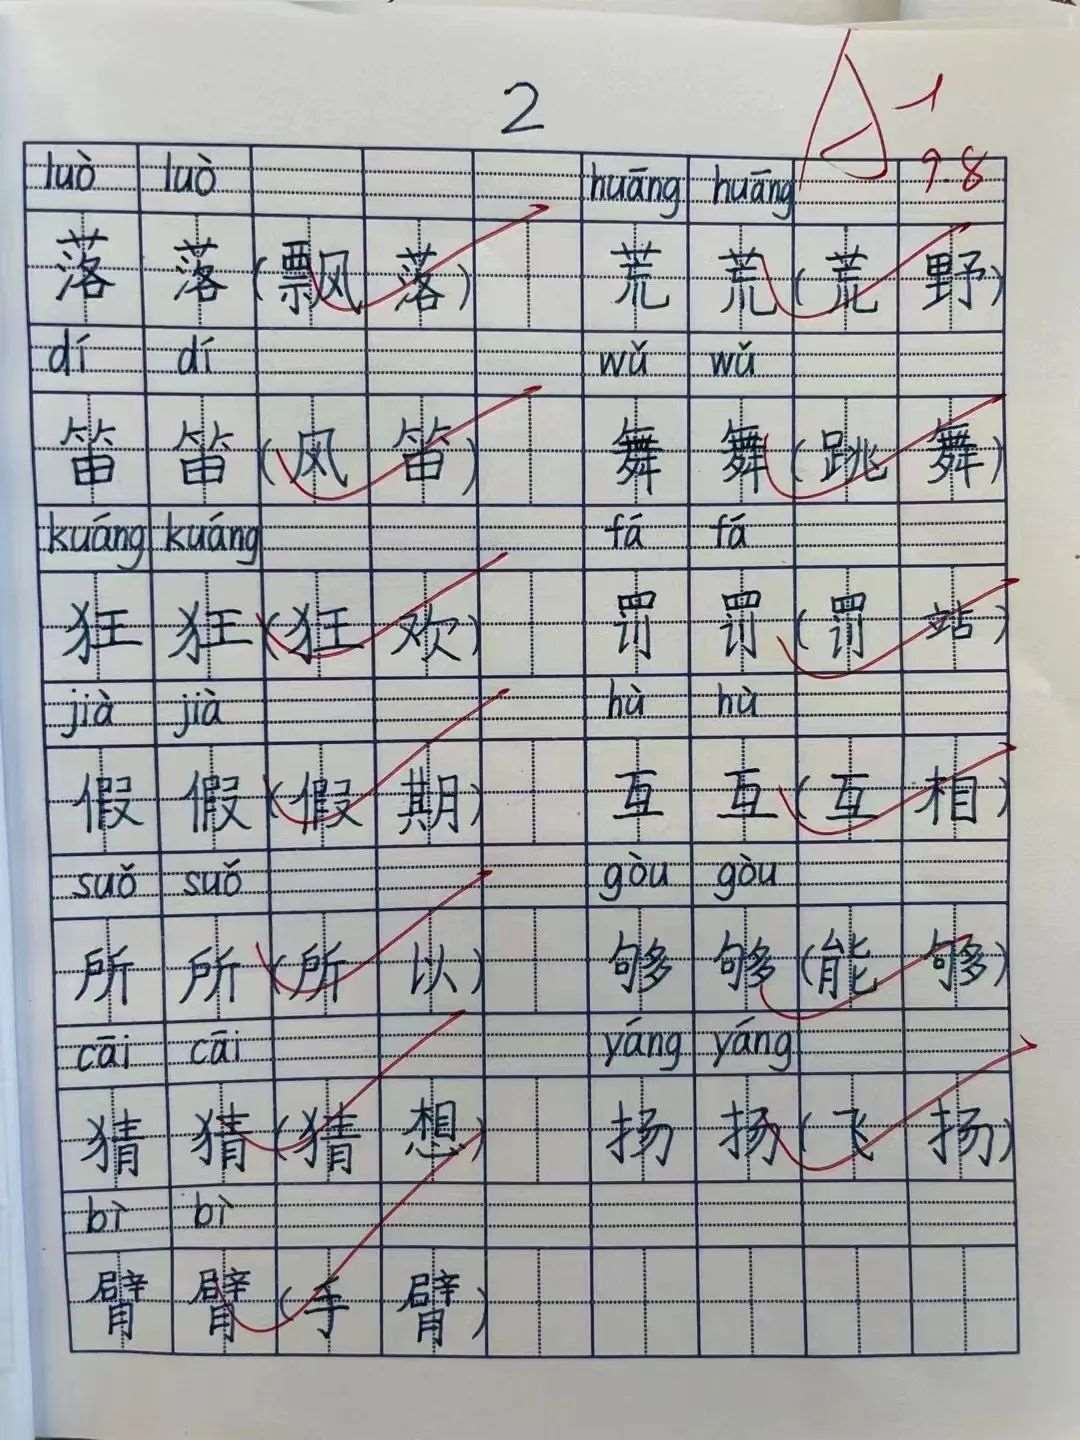 2
A -1
9.8
luò luò huāng huāng
落 落 (飘 落) 荒 荒 (荒 野)
dí dí wǔ wǔ
笛 笛 (风 笛) 舞 舞 (跳 舞)
kuáng kuáng fá fá
狂 狂 (狂 欢) 罚 罚 (罚 站)
jià jià hù hù
假 假 (假 期) 互 互 (互 相)
suǒ suǒ gòu gòu
所 所 (所 以) 够 够 (能 够)
cāi cāi yáng yáng
猜 猜 (猜 想) 扬 扬 (飞 扬)
bì bì
臂 臂 (手 臂)